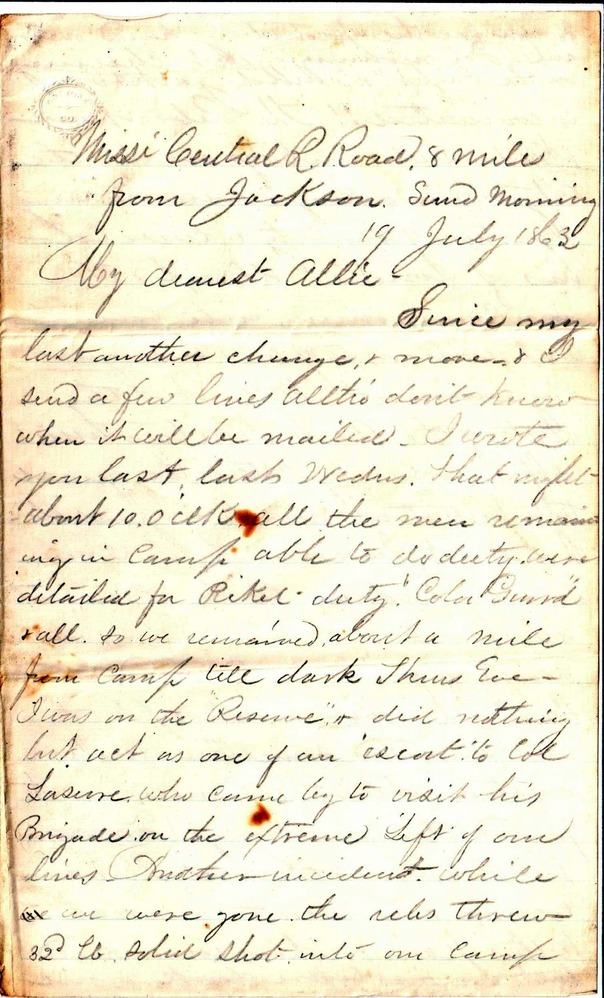 Missi Central R. Road. 8 mile
from Jackson. Sund Morning
19 July 1863
My dearest Allie -
Since my
last another change, & move - & I
send a few lines altho' don't know
when it will be mailed - I wrote
you last, last Wedns. that night
about 10. O'clk all the men remain
ing in camp able to do duty. were
detailed for Piket duty. "Color Guard"
& all. so we remained about a mile
from Camp till dark Thurs Eve -
I was on the "Reserve", & did nothing
but act as one of an 'escort' to Col
who came by to visit his
Brigade on the extreme 'Left' of our
lines - Another incident. while
we were gone the rebs threw
32d lb. solid shot into our camp